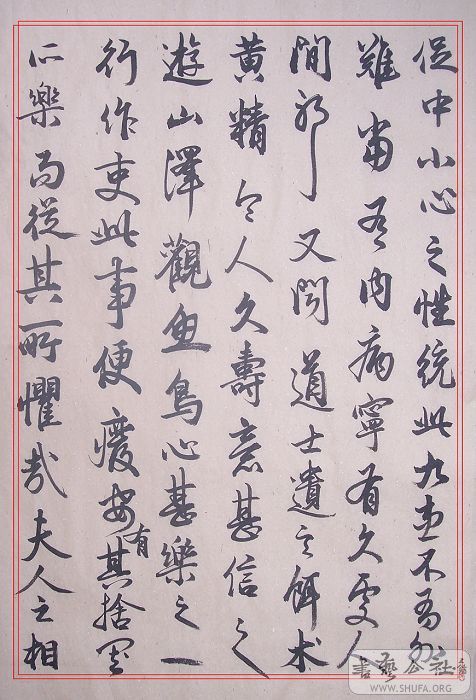 促中小心之性統此九患不有外
難當有内病寧有久處人
間耶又聞道士遺言餌术
黄精令人久壽意甚信之
遊山澤觀魚鳥心甚樂之一
行作吏此事便廢安有其捨
所樂而從其所懼哉夫人之相
書藝公社
WWW.SHUFA.ORG